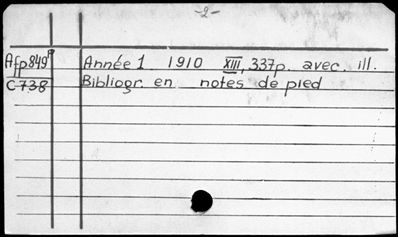 -2-
Afp849 Année 1 1910 XIII, 337p. avec. ill.
C738 Bibliogr. en notes de pied